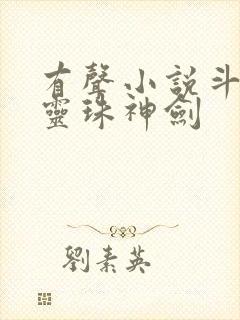 有聲小說斗
靈珠神劍
劉素英